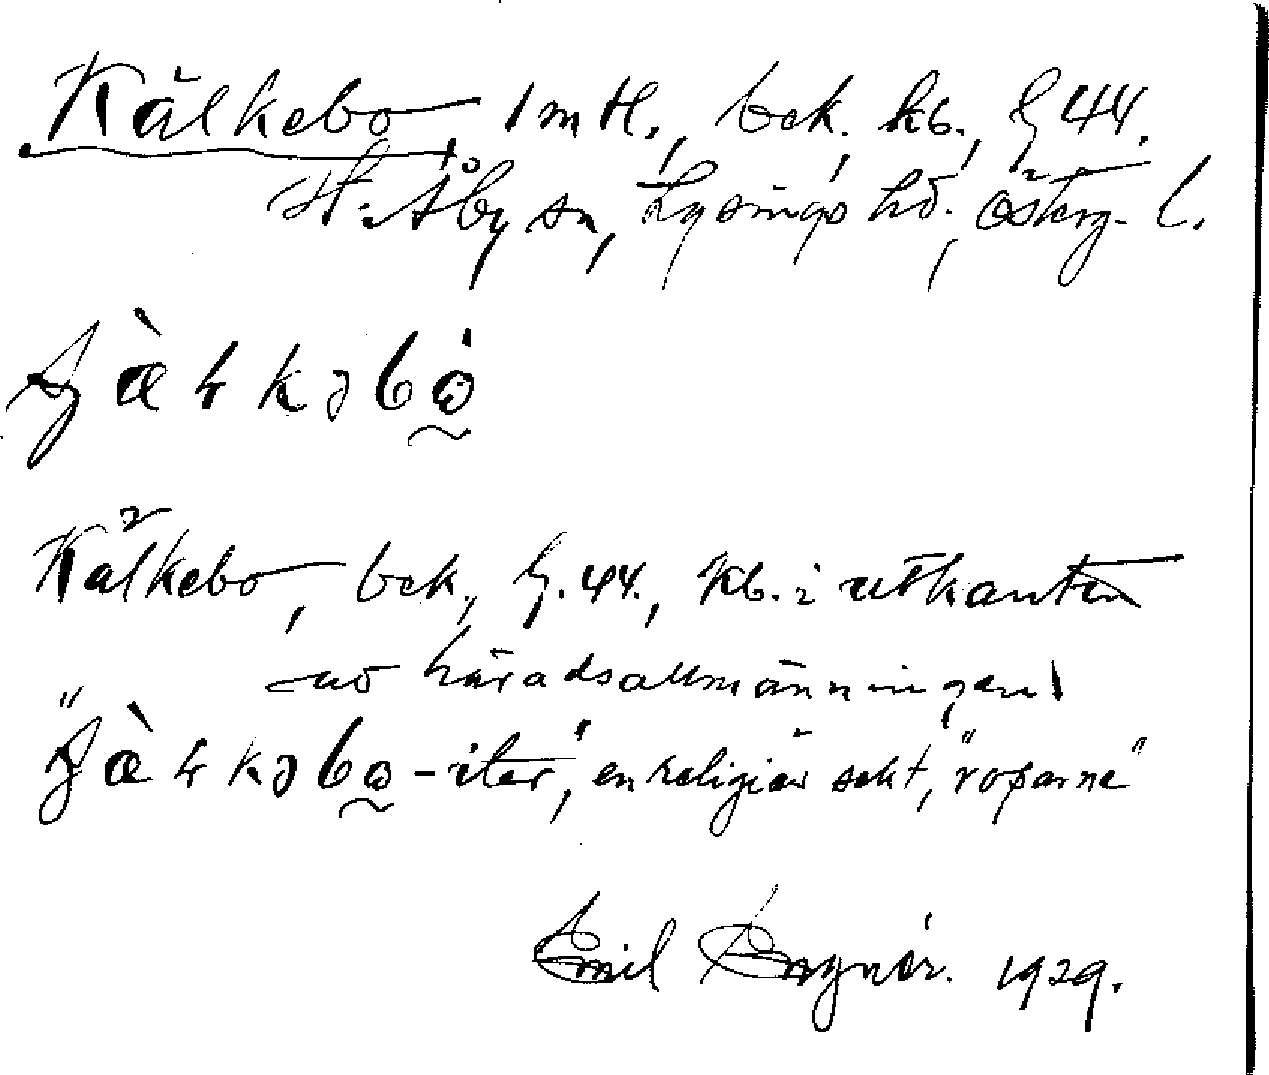 Kälkebo, 1 mtl., bek. kb., G 44.
St. Åby sn, Lysings hd., Österg. l.
Kälkebo, bek., G. 44., kb. i utkanten
av häradsallmänningen
-iter", en religiös sekt, "roparne"
Emil Engnér. 1929.